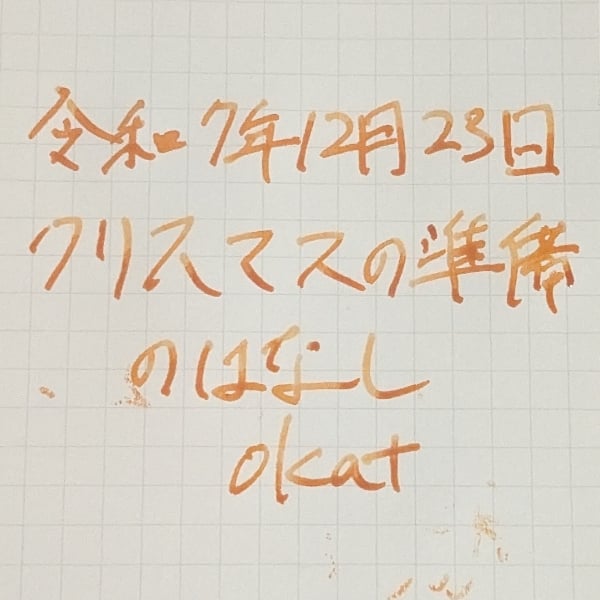 令和7年12月23日
クリスマスの準備
のはなし
okat